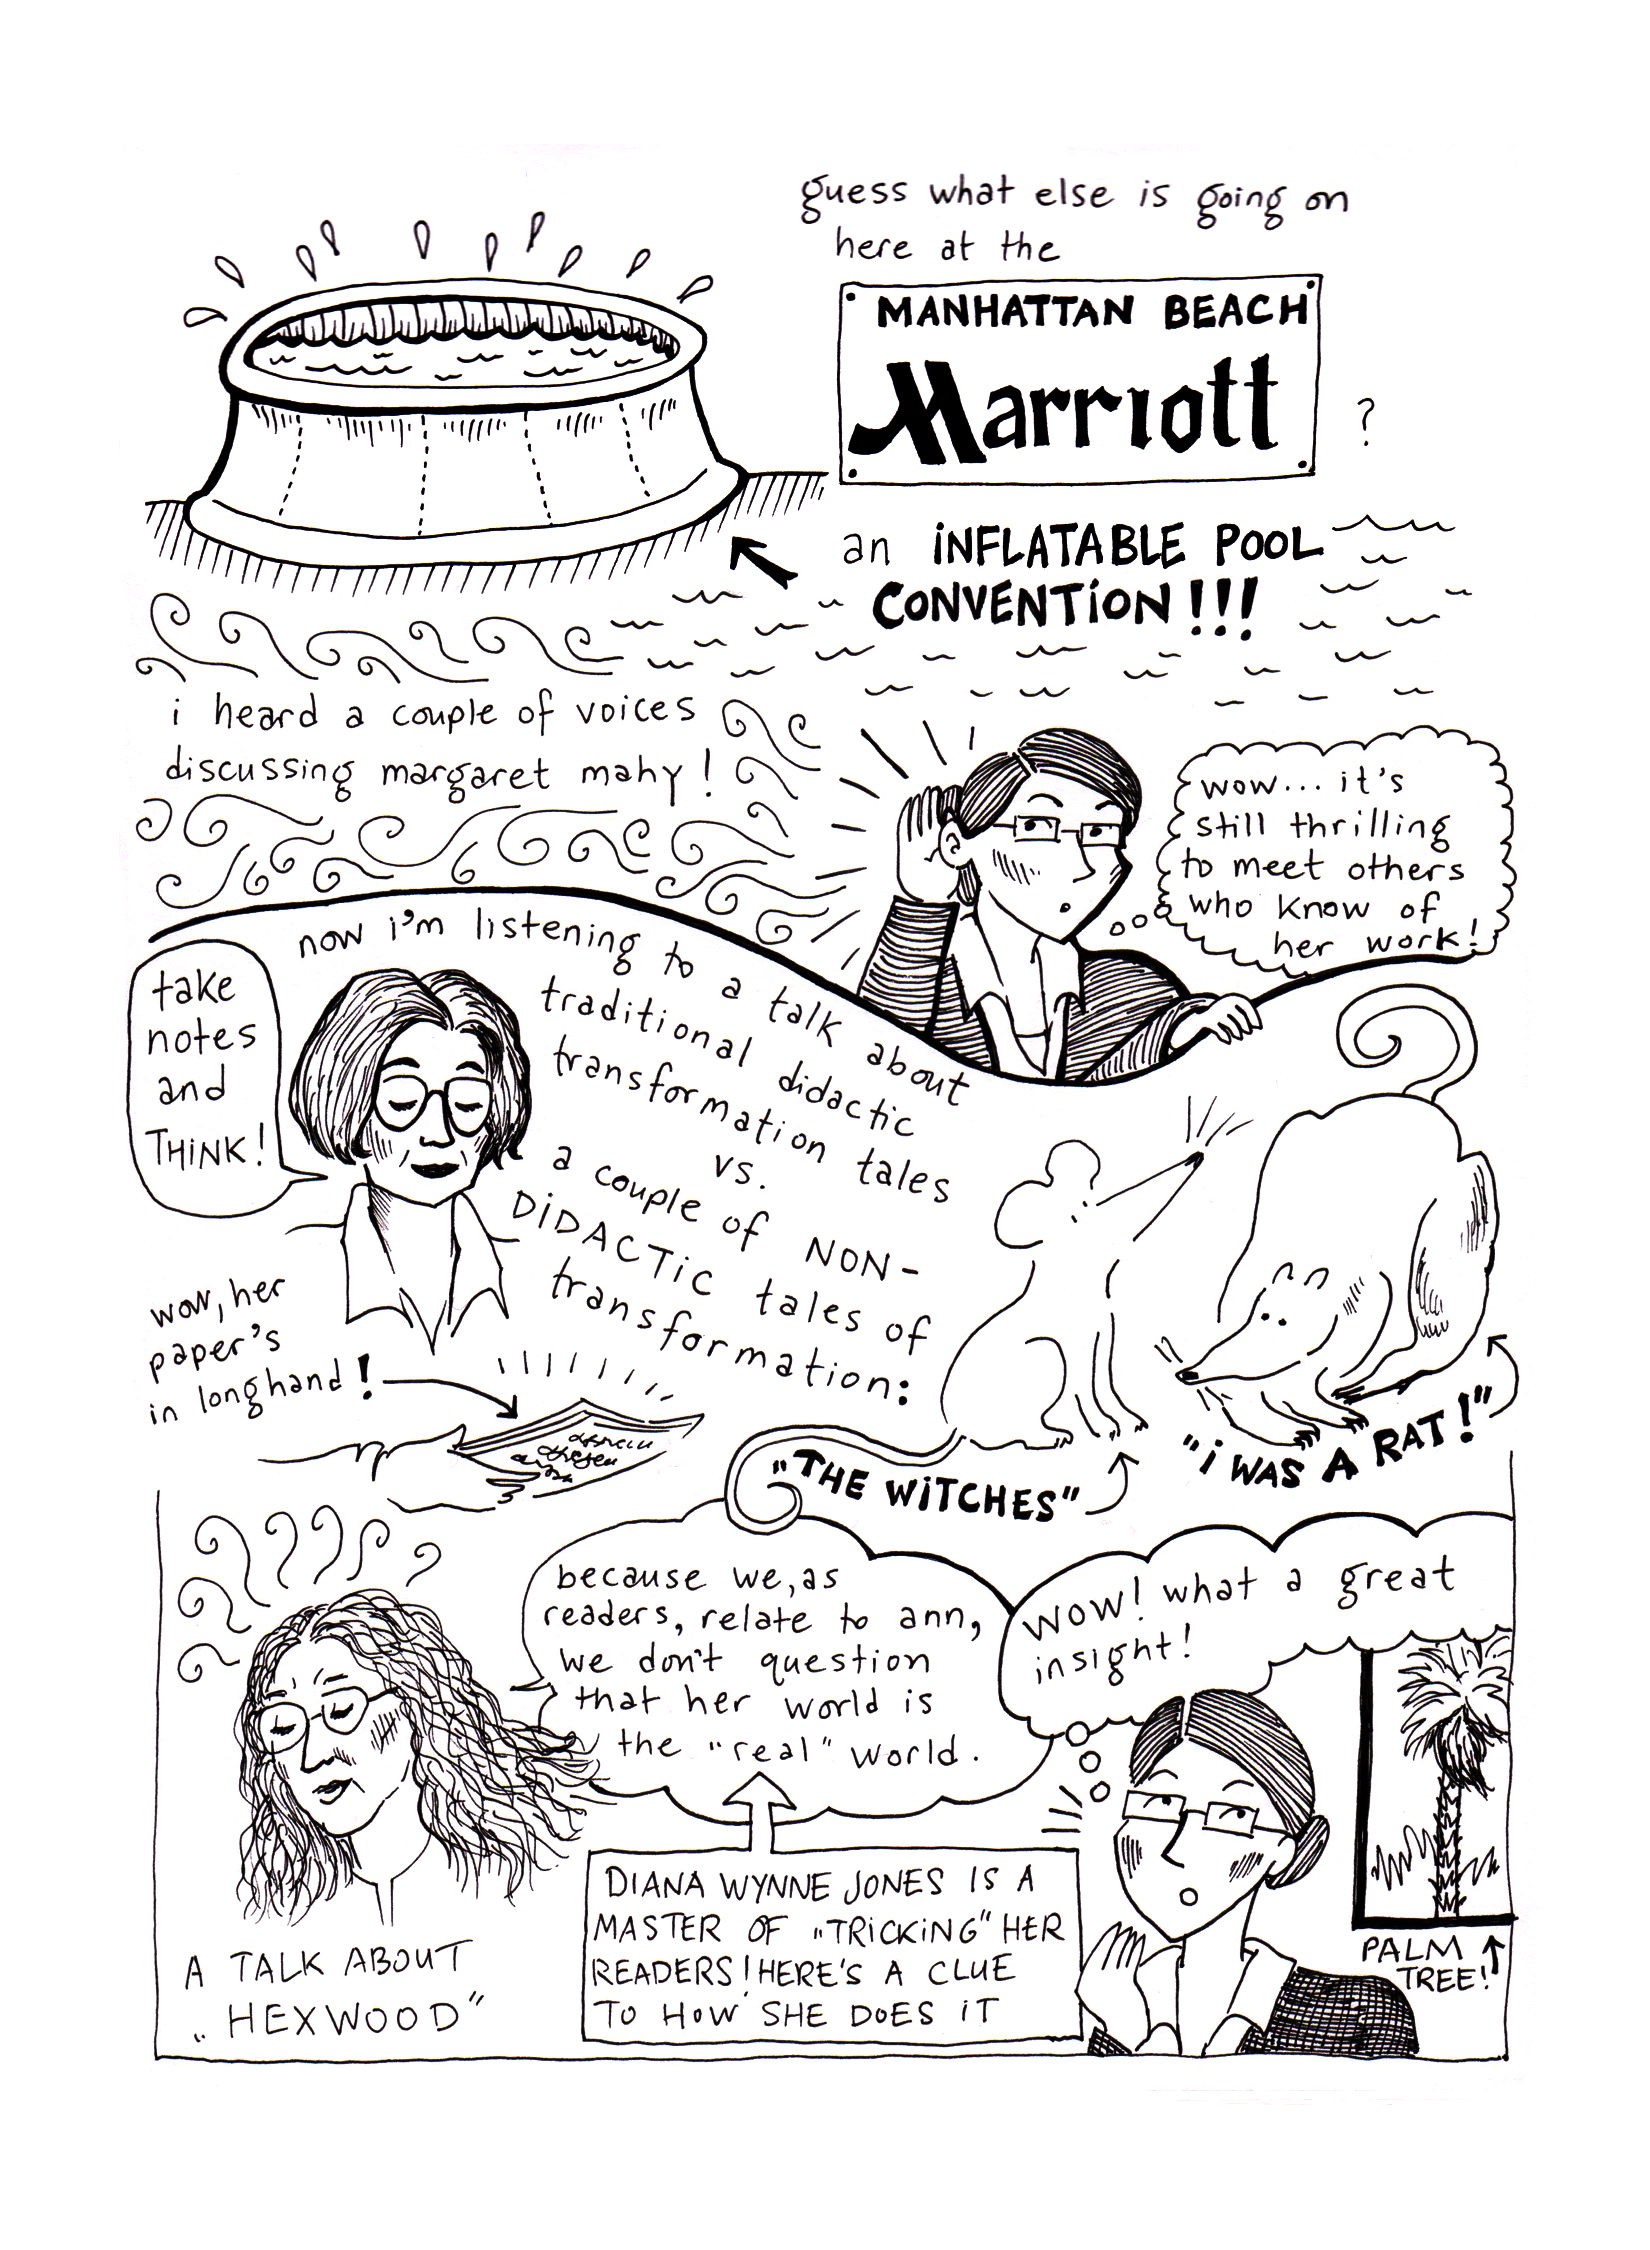 guess what else is going on
here at the
MANHATTAN BEACH
Marriott
?
an INFLATABLE POOL
CONVENTION!!!
i heard a couple of voices
discussing margaret mahy!
wow... it's
still thrilling
to meet others
who know of
her work!
now i'm listening to a talk about
traditional didactic
transformation tales
vs.
a couple of NON-
DIDACTIC tales of
transformation:
take
notes
and
THINK!
wow, her
paper's
in longhand!
"THE WITCHES"
"I WAS A RAT!"
because we, as
readers, relate to ann,
we don't question
that her world is
the "real" world.
wow! what a great
insight!
A TALK ABOUT
"HEXWOOD"
DIANA WYNNE JONES IS A
MASTER OF "TRICKING" HER
READERS! HERE'S A CLUE
TO HOW SHE DOES IT
PALM
TREE!